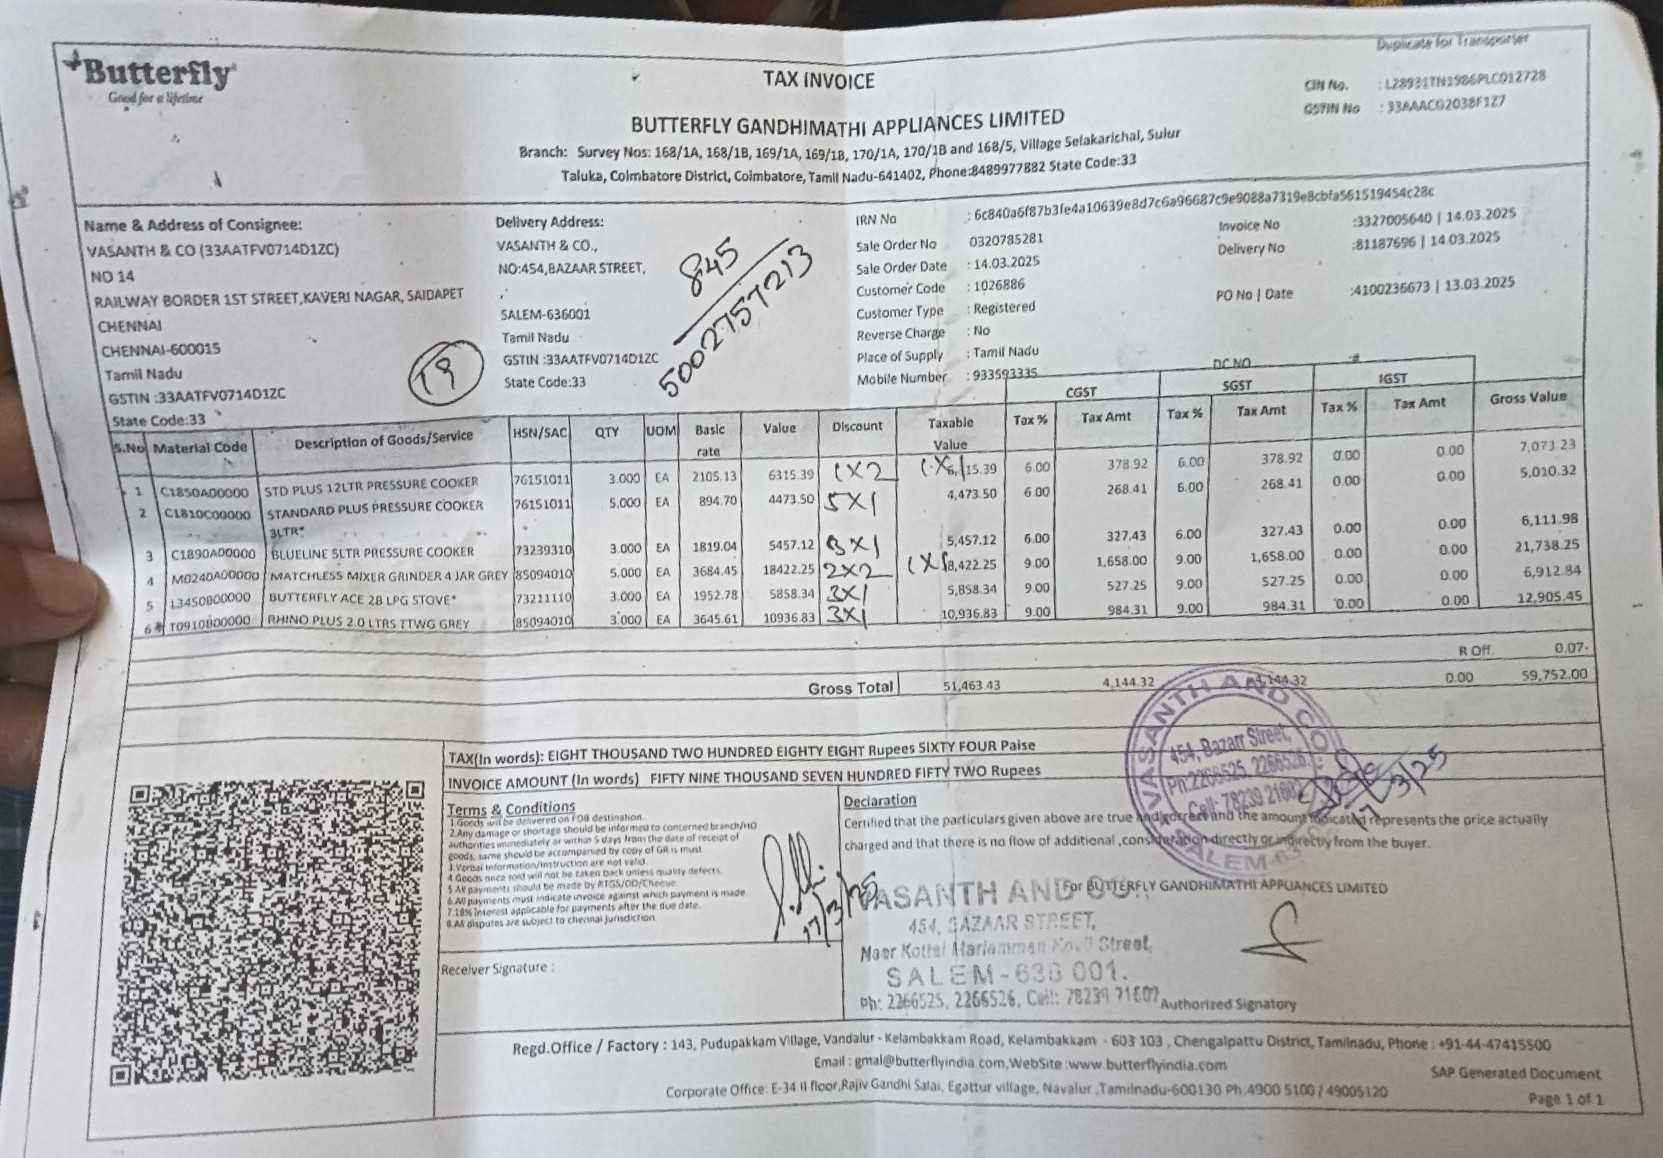 Duplicate for Transporter
Butterfly
Good for a lifetime
TAX INVOICE
CIN No. : L28931TN1986PLC012728
GSTIN No : 33AAACG2038F1Z7
BUTTERFLY GANDHIMATHI APPLIANCES LIMITED
Branch: Survey Nos: 168/1A, 168/1B, 169/1A, 169/1B, 170/1A, 170/1B and 168/5, Village Selakarichal, Sulur
Taluka, Coimbatore District, Coimbatore, Tamil Nadu-641402, Phone:8489977882 State Code:33
Name & Address of Consignee:
VASANTH & CO (33AATFV0714D1ZC)
NO 14
RAILWAY BORDER 1ST STREET,KAVERI NAGAR, SAIDAPET
CHENNAI
CHENNAI-600015
Tamil Nadu
GSTIN :33AATFV0714D1ZC
State Code:33
T9
Delivery Address:
VASANTH & CO.,
NO:454,BAZAAR STREET,
,
SALEM-636001
Tamil Nadu
GSTIN :33AATFV0714D1ZC
State Code:33
845
5002757213
IRN No : 6c840a6f87b3fe4a10639e8d7c6a96687c9e9088a7319e8cbfa561519454c28c
Sale Order No 0320785281
Sale Order Date : 14.03.2025
Customer Code : 1026886
Customer Type : Registered
Reverse Charge : No
Place of Supply : Tamil Nadu
Mobile Number : 933593335
Invoice No :3327005640 | 14.03.2025
Delivery No :81187696 | 14.03.2025
PO No | Date :4100236673 | 13.03.2025
DC NO :
CGST SGST IGST
S.No Material Code Description of Goods/Service HSN/SAC QTY UOM Basic rate Value Discount Taxable Value Tax % Tax Amt Tax % Tax Amt Tax % Tax Amt Gross Value
1 C1850A00000 STD PLUS 12LTR PRESSURE COOKER 76151011 3.000 EA 2105.13 6315.39 1X2 15.39 6.00 378.92 6.00 378.92 0.00 0.00 7,073.23
2 C1810C00000 STANDARD PLUS PRESSURE COOKER 76151011 5.000 EA 894.70 4473.50 5X1 4,473.50 6.00 268.41 6.00 268.41 0.00 0.00 5,010.32
3LTR*
3 C1890A00000 BLUELINE 5LTR PRESSURE COOKER 73239310 3.000 EA 1819.04 5457.12 3X1 5,457.12 6.00 327.43 6.00 327.43 0.00 0.00 6,111.98
4 M0240A00000 MATCHLESS MIXER GRINDER 4 JAR GREY 85094010 5.000 EA 3684.45 18422.25 2X2 1X1 8,422.25 9.00 1,658.00 9.00 1,658.00 0.00 0.00 21,738.25
5 L3450B00000 BUTTERFLY ACE 2B LPG STOVE* 73211110 3.000 EA 1952.78 5858.34 3X1 5,858.34 9.00 527.25 9.00 527.25 0.00 0.00 6,912.84
6 T0910B00000 RHINO PLUS 2.0 LTRS TTWG GREY 85094010 3.000 EA 3645.61 10936.83 3X1 10,936.83 9.00 984.31 9.00 984.31 0.00 0.00 12,905.45
R Off. 0.07-
Gross Total 51,463.43 4,144.32 4,144.32 0.00 59,752.00
TAX(In words): EIGHT THOUSAND TWO HUNDRED EIGHTY EIGHT Rupees SIXTY FOUR Paise
INVOICE AMOUNT (In words) FIFTY NINE THOUSAND SEVEN HUNDRED FIFTY TWO Rupees
Terms & Conditions
1.Goods will be delivered on FOB destination.
2.Any damage or shortage should be informed to concerned branch/HO
authorities immediately or within 5 days from the date of receipt of
goods, same should be accompanied by copy of GR is must.
3.Verbal Information/Instruction are not valid.
4.Goods once sold will not be taken back unless quality defects.
5.All payments should be made by RTGS/DD/Cheque.
6.All payments must indicate invoice against which payment is made.
7.18% Interest applicable for payments after the due date.
8.All disputes are subject to chennai jurisdiction.
17/3/25
Receiver Signature :
Declaration
Certified that the particulars given above are true and correct and the amount indicated represents the price actually
charged and that there is no flow of additional ,consideration directly or indirectly from the buyer.
VASANTH AND CO
454, Bazarr Street,
Ph:2266525, 2266526.
Cell: 78239 21602
SALEM-63
17/3/25
For BUTTERFLY GANDHIMATHI APPLIANCES LIMITED
VASANTH AND CO.,
454, BAZAAR STREET,
Near Kottai Mariamman Kovil Street,
SALEM-636 001.
Ph: 2266525, 2266526, Cell: 78239 21602
Authorized Signatory
Regd.Office / Factory : 143, Pudupakkam Village, Vandalur - Kelambakkam Road, Kelambakkam - 603 103 , Chengalpattu District, Tamilnadu, Phone : +91-44-47415500
Email : gmal@butterflyindia.com,WebSite :www.butterflyindia.com
Corporate Office: E-34 II floor,Rajiv Gandhi Salai, Egattur village, Navalur ,Tamilnadu-600130 Ph:4900 5100 / 49005120
SAP Generated Document
Page 1 of 1